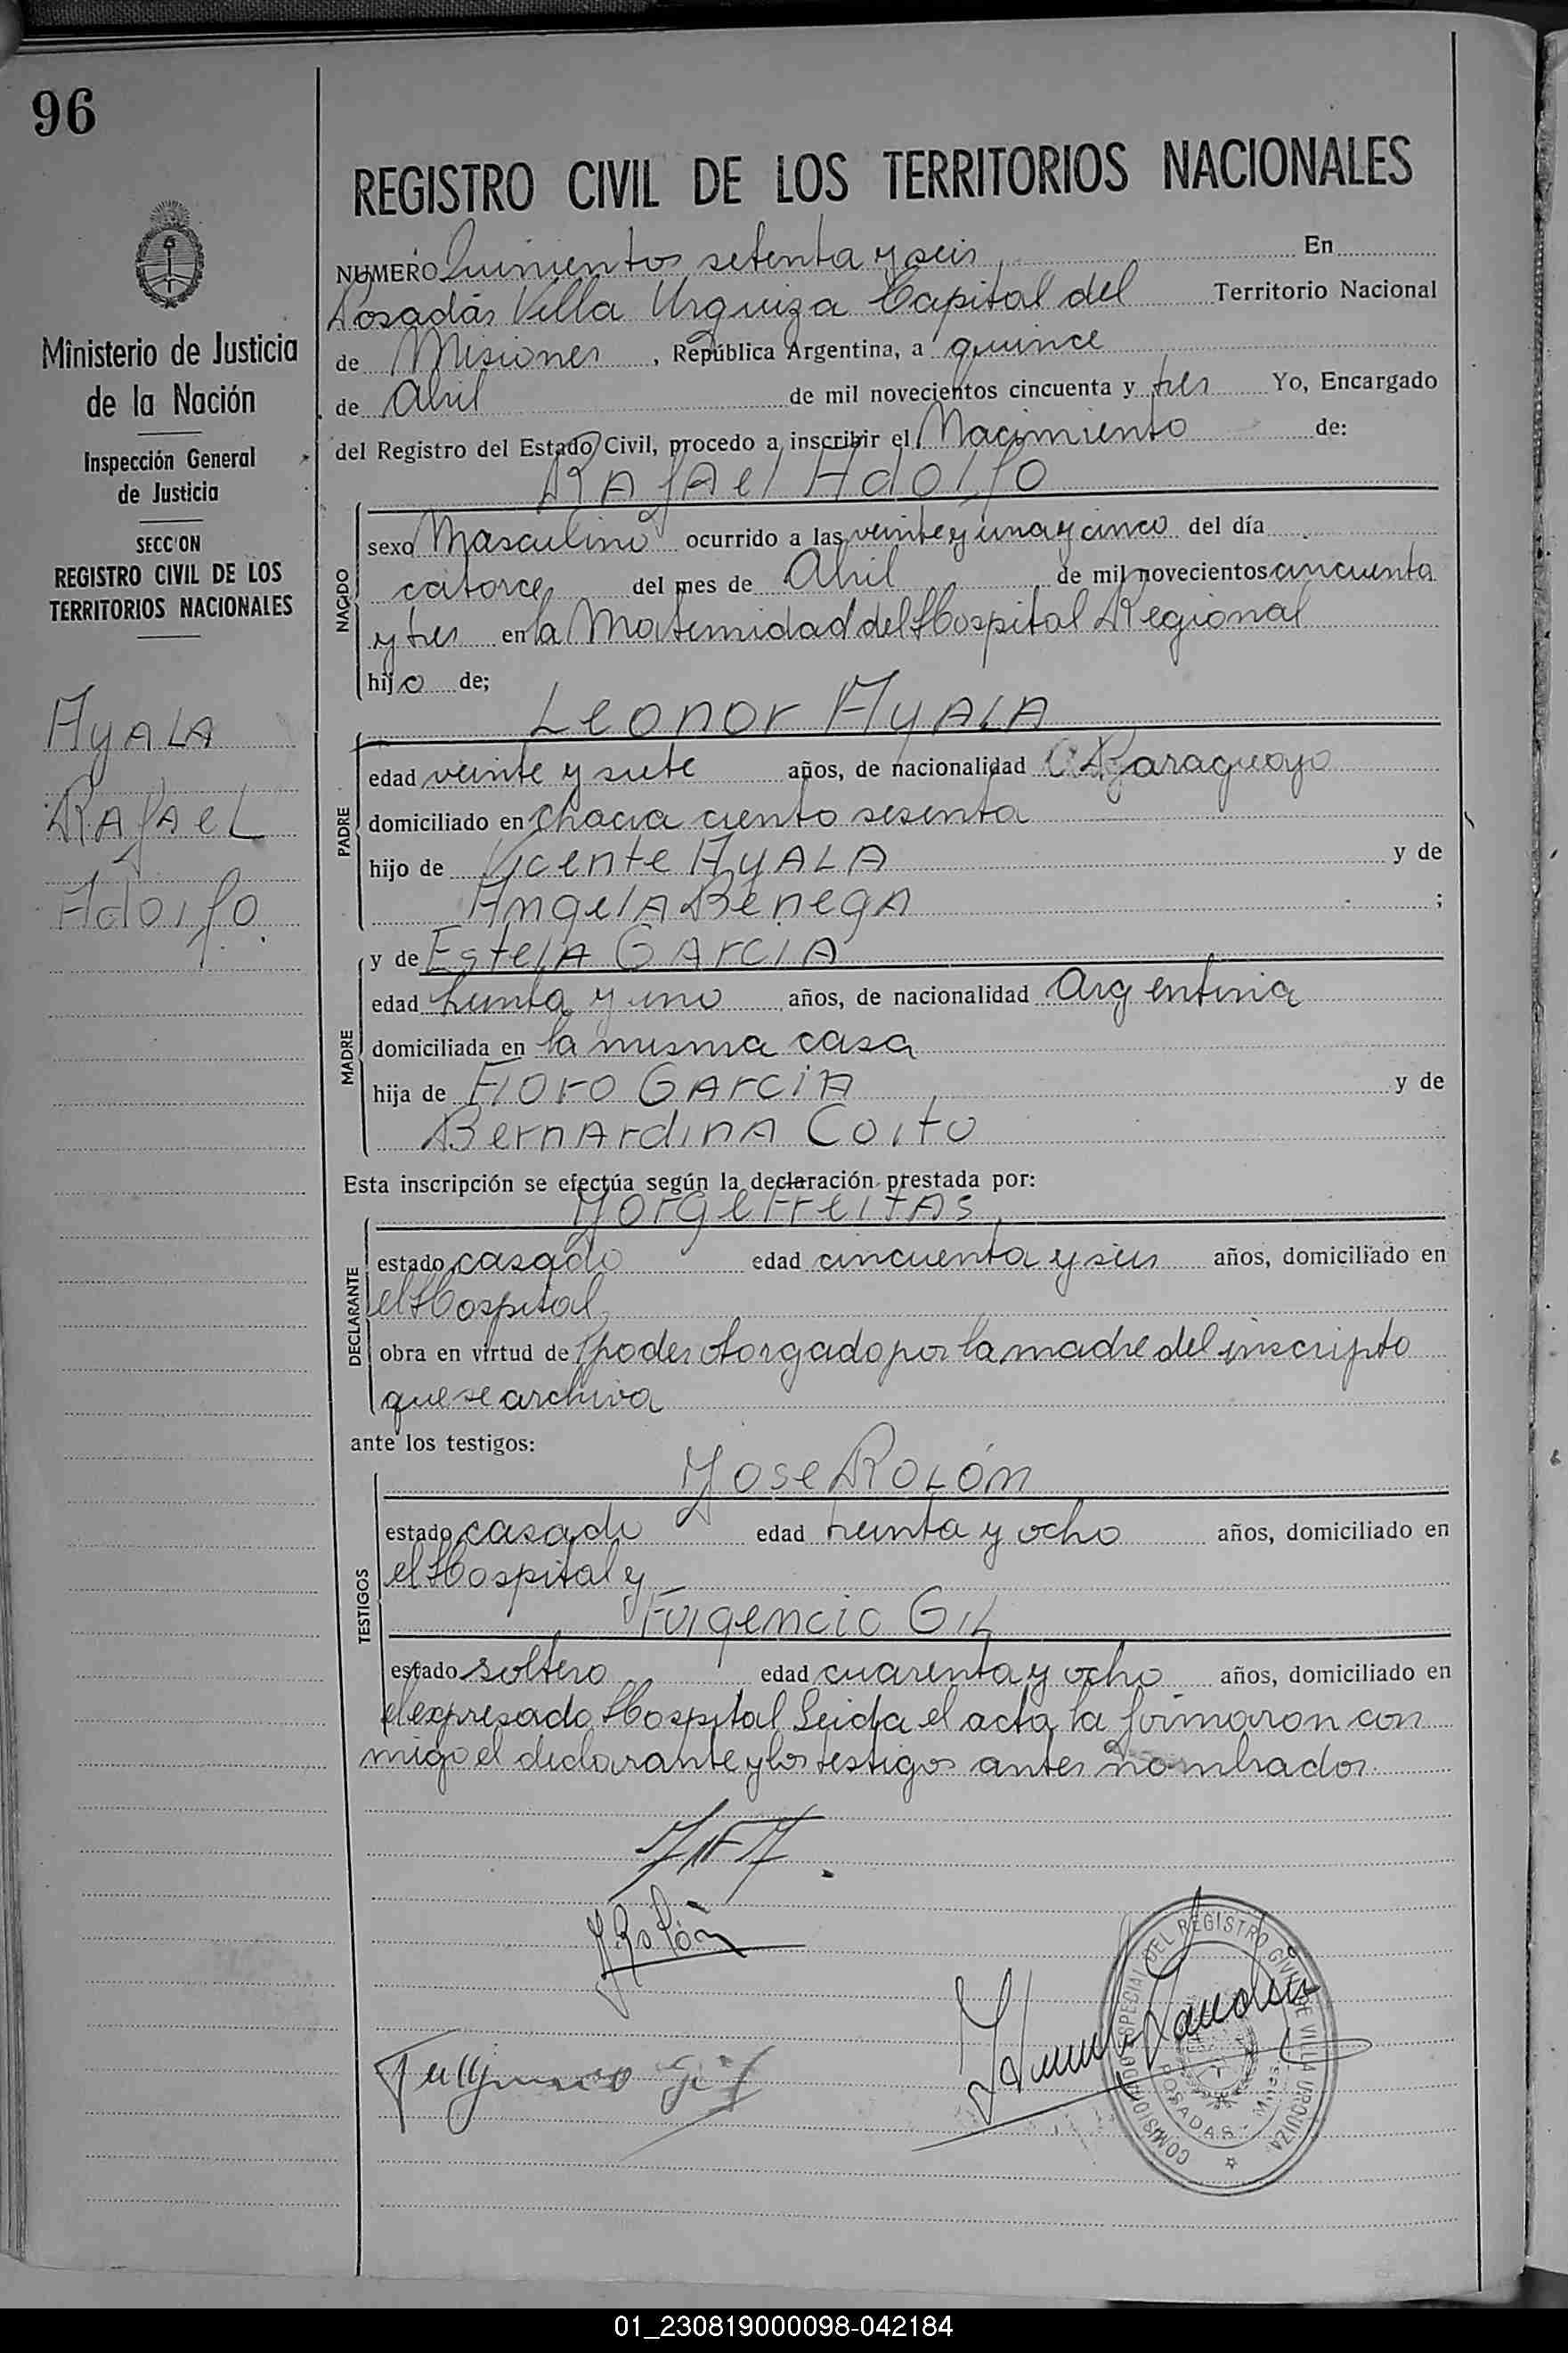 96
REGISTRO CIVIL DE LOS TERRITORIOS NACIONALES
NUMERO Quinientos setenta y seis En
Posadas Villa Urquiza Capital del Territorio Nacional
de Misiones, República Argentina, a quince
de Abril de mil novecientos cincuenta y tres Yo, Encargado
del Registro del Estado Civil, procedo a inscribir el Nacimiento de:
Rafael Adolfo
NACIDO
sexo Masculino ocurrido a las veinte y una y cinco del día
catorce del mes de Abril de mil novecientos cincuenta
y tres en la Maternidad del Hospital Regional
hijo de;
Leonor AyALA
PADRE
edad veinte y siete años, de nacionalidad Paraguayo
domiciliado en chacra ciento sesenta
hijo de Vicente AyALA y de
Angela Benega ;
y de Estela Garcia
MADRE
edad treinta y uno años, de nacionalidad Argentina
domiciliada en la misma casa
hija de Floro Garcia y de
Bernardina Coito
Esta inscripción se efectúa según la declaración prestada por:
Jorge Freitas
DECLARANTE
estado casado edad cincuenta y seis años, domiciliado en
el Hospital
obra en virtud de poder otorgado por la madre del inscripto
que se archiva
ante los testigos:
Jose Rolón
TESTIGOS
estado casado edad treinta y ocho años, domiciliado en
el Hospital y
Fulgencio Gil
estado soltero edad cuarenta y ocho años, domiciliado en
el expresado Hospital Leida el acta la firmaron con
migo el declarante y los testigos antes nombrados.
J. Rolón
Fulgencio Gil
COMISION ESPECIAL DEL REGISTRO CIVIL DE VILLA URQUIZA
POSADAS - Mnes.
Ministerio de Justicia
de la Nación
Inspección General
de Justicia
SECCION
REGISTRO CIVIL DE LOS
TERRITORIOS NACIONALES
AyALA
Rafael
Adolfo
01_230819000098-042184